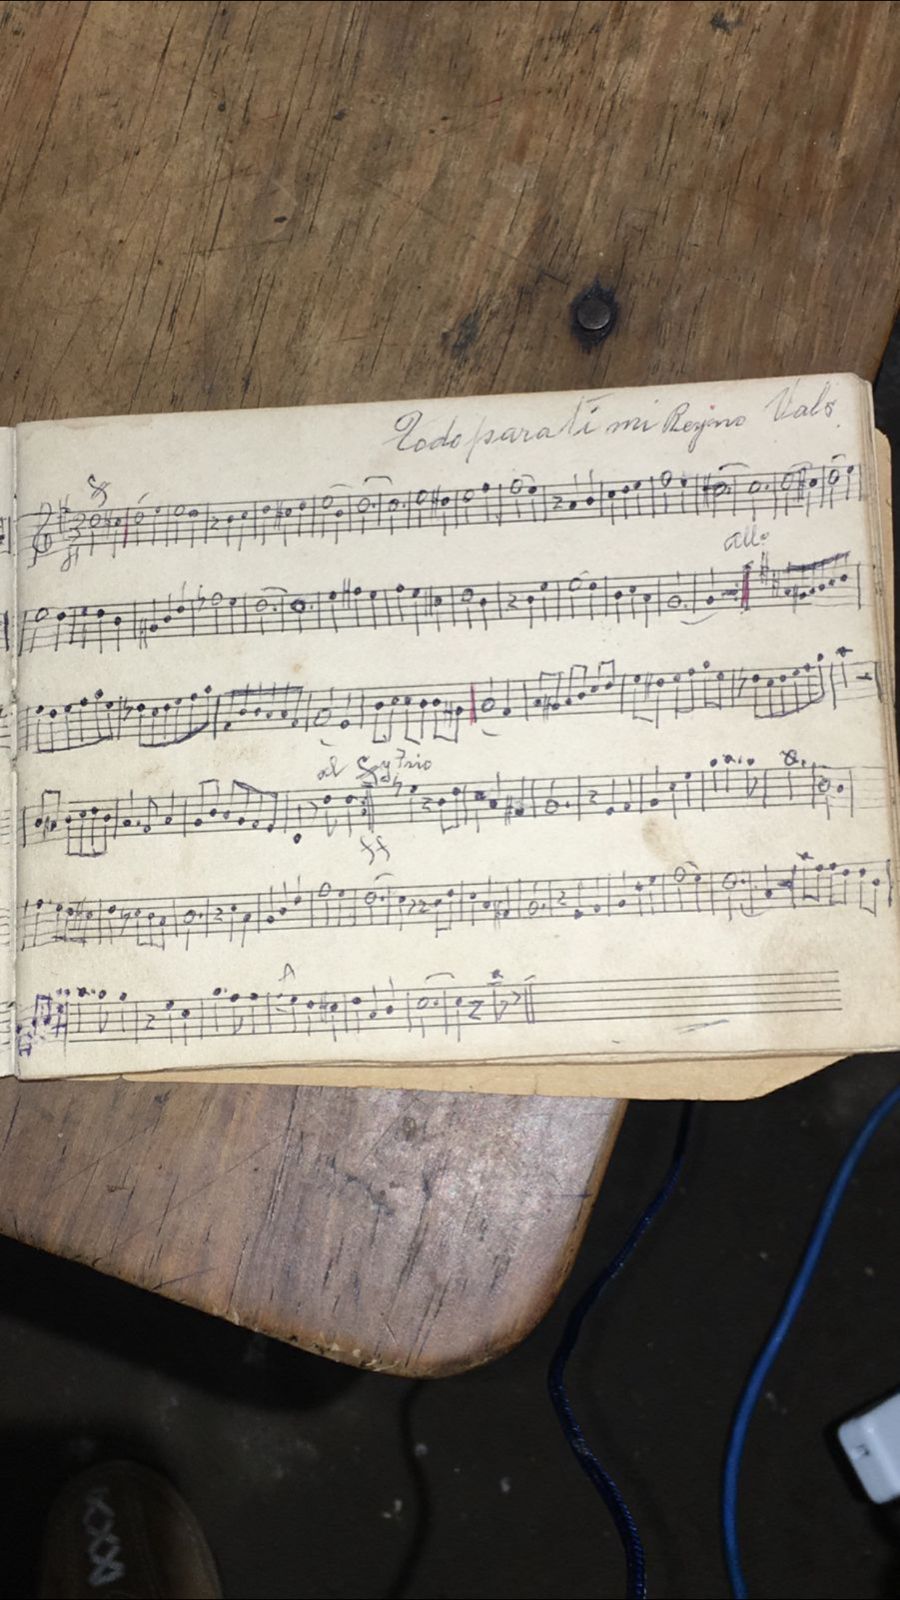 Todo para tí mi Reyno Vals.
All:
al S y Trio
ff